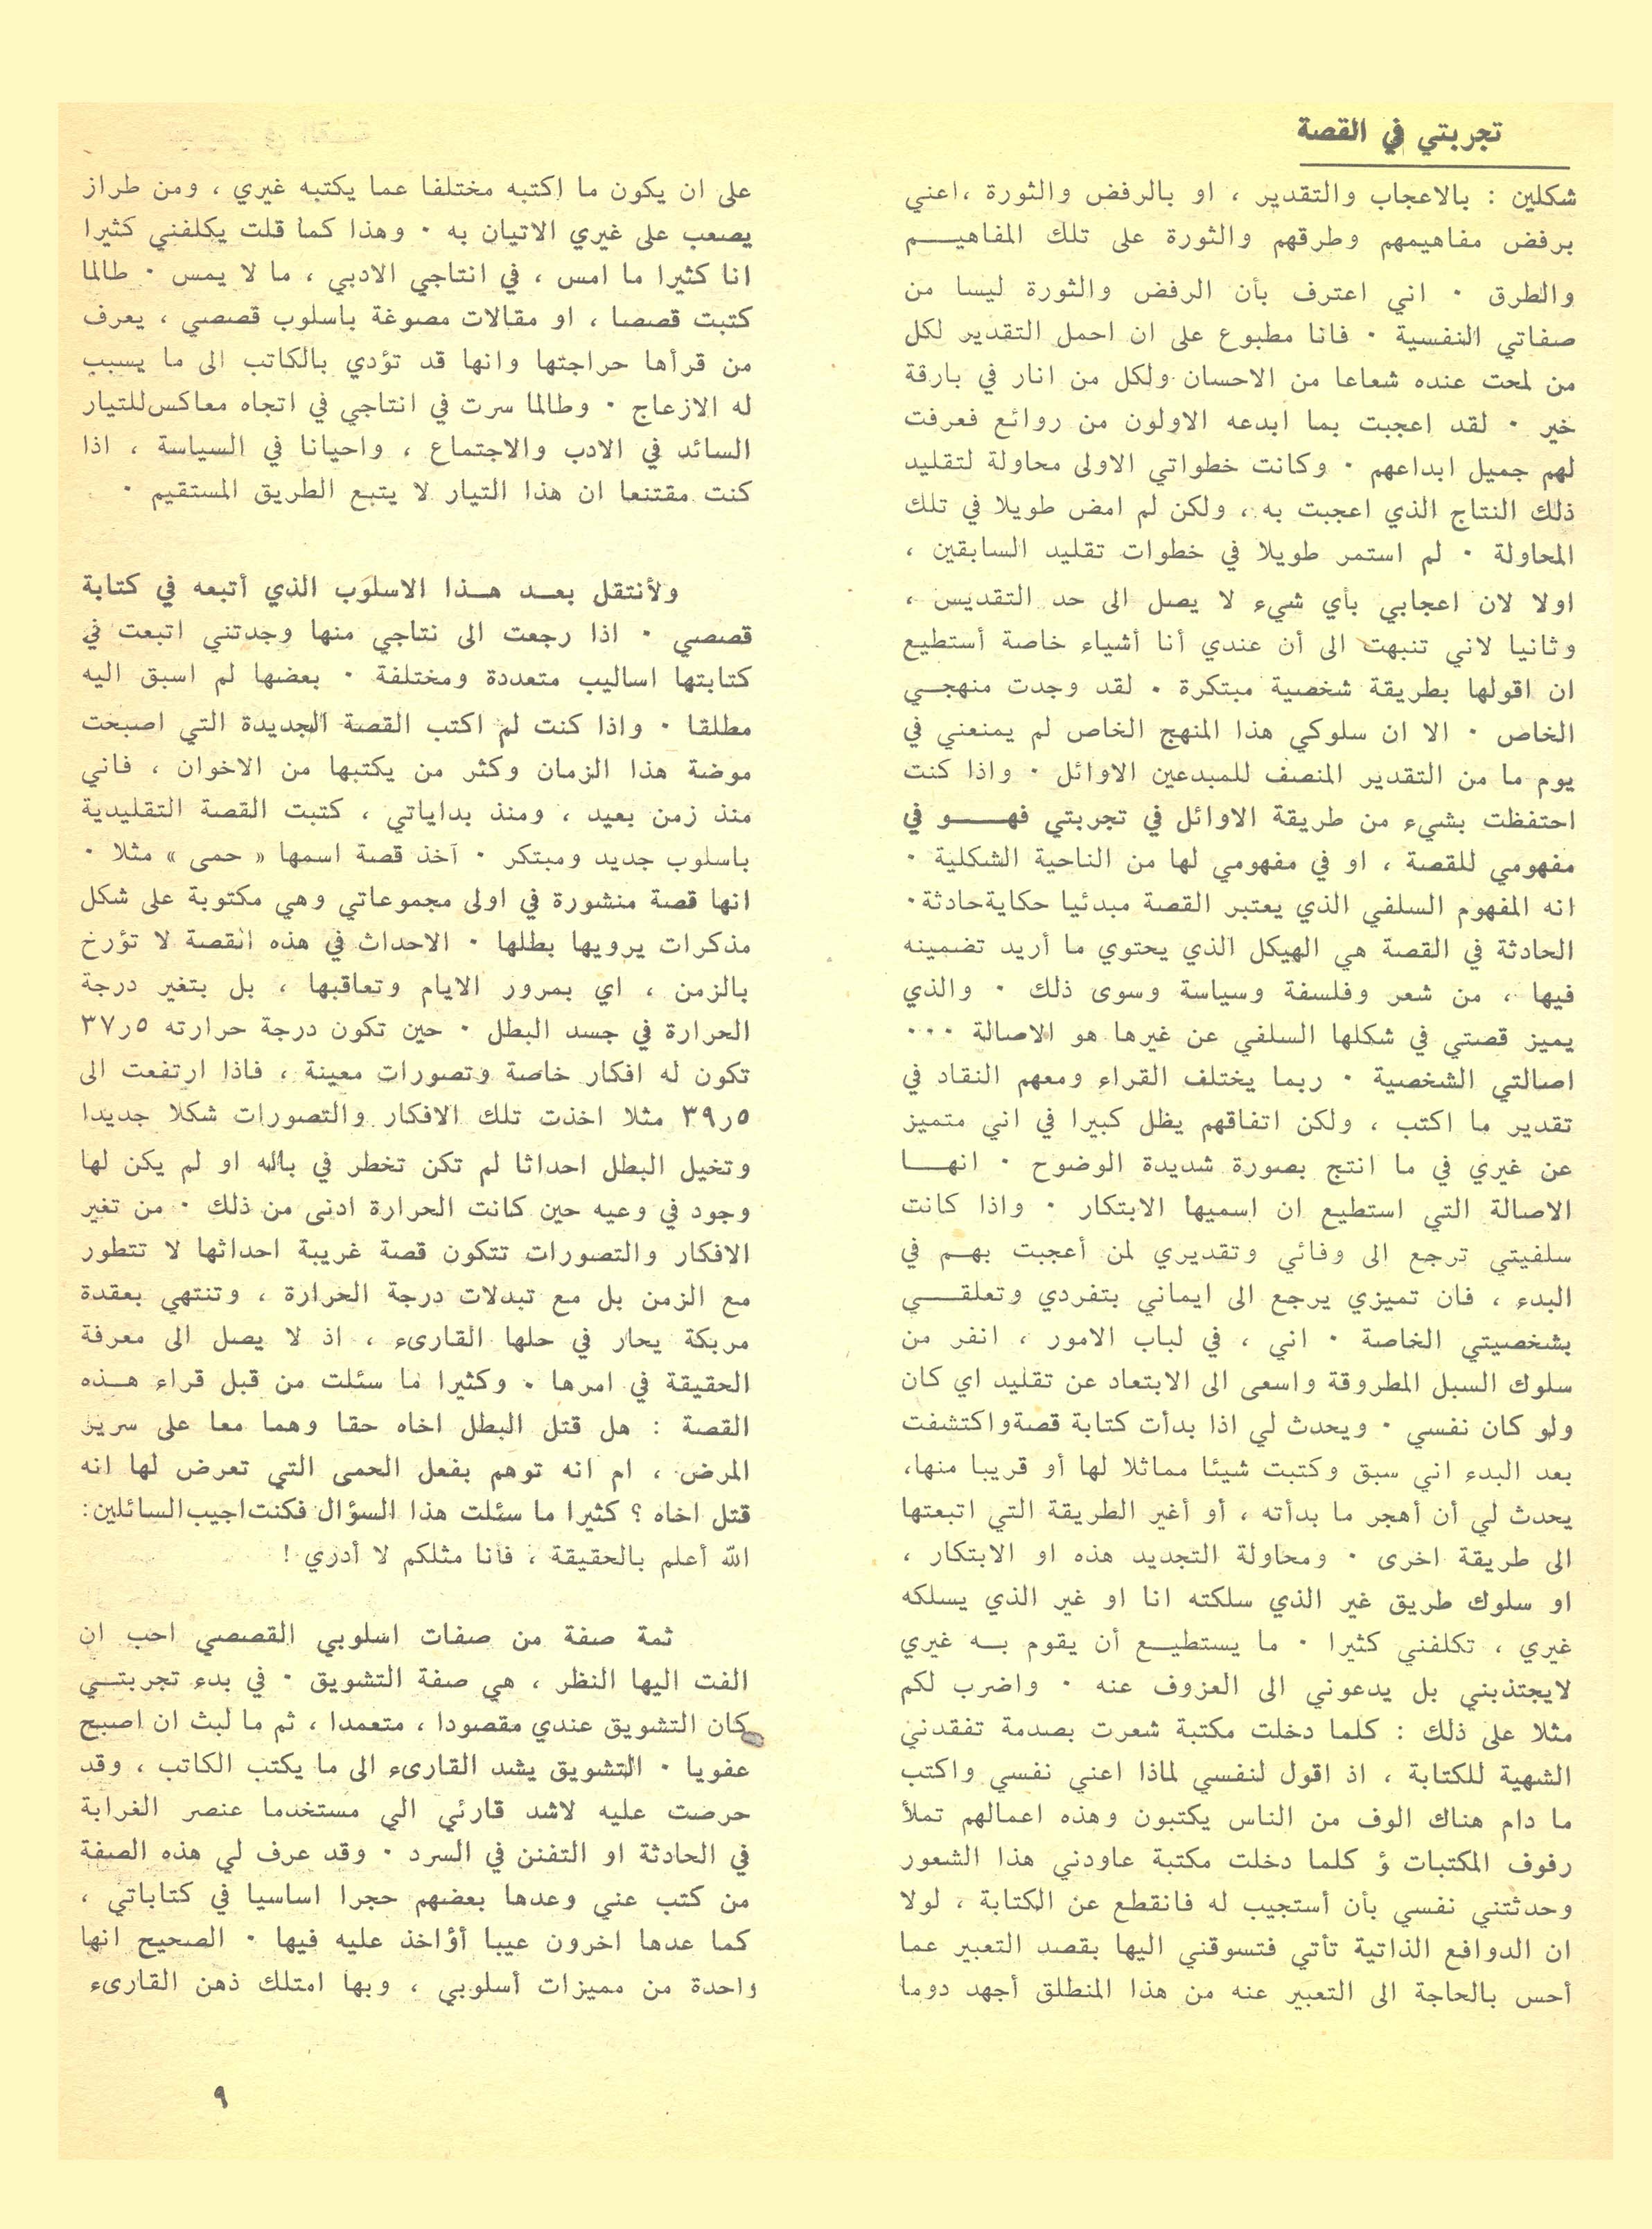 تجربتي في القصة
شكلين : بالاعجاب والتقدير ، او بالرفض والثورة ،اعني
برفض مفاهيمهم وطرقهم والثورة على تلك المفاهيم
والطرق ٠ اني اعترف بأن الرفض والثورة ليسا من
صفاتي النفسية ٠ فانا مطبوع على ان احمل التقدير لكل
من لمحت عنده شعاعا من الاحسان ولكل من انار في بارقة
خير ٠ لقد اعجبت بما ابدعه الاولون من روائع فعرفت
لهم جميل ابداعهم ٠ وكانت خطواتي الاولى محاولة لتقليد
ذلك النتاج الذي اعجبت به ، ولكن لم امض طويلا في تلك
المحاولة ٠ لم استمر طويلا في خطوات تقليد السابقين ،
اولا لان اعجابي بأي شيء لا يصل الى حد التقديس ،
وثانيا لاني تنبهت الى أن عندي أنا أشياء خاصة أستطيع
ان اقولها بطريقة شخصية مبتكرة ٠ لقد وجدت منهجي
الخاص ٠ الا ان سلوكي هذا المنهج الخاص لم يمنعني في
يوم ما من التقدير المنصف للمبدعين الاوائل ٠ واذا كنت
احتفظت بشيء من طريقة الاوائل في تجربتي فهو في
مفهومي للقصة ، او في مفهومي لها من الناحية الشكلية ٠
انه المفهوم السلفي الذي يعتبر القصة مبدئيا حكاية حادثة٠
الحادثة في القصة هي الهيكل الذي يحتوي ما أريد تضمينه
فيها ، من شعر وفلسفة وسياسة وسوى ذلك ٠ والذي
يميز قصتي في شكلها السلفي عن غيرها هو الاصالة ٠٠٠
اصالتي الشخصية ٠ ربما يختلف القراء ومعهم النقاد في
تقدير ما اكتب ، ولكن اتفاقهم يظل كبيرا في اني متميز
عن غيري في ما انتج بصورة شديدة الوضوح ٠ انها
الاصالة التي استطيع ان اسميها الابتكار ٠ واذا كانت
سلفيتي ترجع الى وفائي وتقديري لمن أعجبت بهم في
البدء ، فان تميزي يرجع الى ايماني بتفردي وتعلقي
بشخصيتي الخاصة ٠ اني ، في لباب الامور ، انفر من
سلوك السبل المطروقة واسعى الى الابتعاد عن تقليد اي كان
ولو كان نفسي ٠ ويحدث لي اذا بدأت كتابة قصة واكتشفت
بعد البدء اني سبق وكتبت شيئا مماثلا لها أو قريبا منها،
يحدث لي أن أهجر ما بدأته ، أو أغير الطريقة التي اتبعتها
الى طريقة اخرى ٠ ومحاولة التجديد هذه او الابتكار ،
او سلوك طريق غير الذي سلكته انا او غير الذي يسلكه
غيري ، تكلفني كثيرا ٠ ما يستطيع أن يقوم به غيري
لايجتذبني بل يدعوني الى العزوف عنه ٠ واضرب لكم
مثلا على ذلك : كلما دخلت مكتبة شعرت بصدمة تفقدني
الشهية للكتابة ، اذ اقول لنفسي لماذا اعني نفسي واكتب
ما دام هناك الوف من الناس يكتبون وهذه اعمالهم تملأ
رفوف المكتبات ؤ كلما دخلت مكتبة عاودني هذا الشعور
وحدثتني نفسي بأن أستجيب له فانقطع عن الكتابة ، لولا
ان الدوافع الذاتية تأتي فتسوقني اليها بقصد التعبير عما
أحس بالحاجة الى التعبير عنه من هذا المنطلق أجهد دوما
على ان يكون ما اكتبه مختلفا عما يكتبه غيري ، ومن طراز
يصعب على غيري الاتيان به ٠ وهذا كما قلت يكلفني كثيرا
انا كثيرا ما امس ، في انتاجي الادبي ، ما لا يمس ٠ طالما
كتبت قصصا ، او مقالات مصوغة باسلوب قصصي ، يعرف
من قرأها حراجتها وانها قد تؤدي بالكاتب الى ما يسبب
له الازعاج ٠ وطالما سرت في انتاجي في اتجاه معاكس للتيار
السائد في الادب والاجتماع ، واحيانا في السياسة ، اذا
كنت مقتنعا ان هذا التيار لا يتبع الطريق المستقيم ٠
ولأنتقل بعد هذا الاسلوب الذي أتبعه في كتابة
قصصي ٠ اذا رجعت الى نتاجي منها وجدتني اتبعت في
كتابتها اساليب متعددة ومختلفة ٠ بعضها لم اسبق اليه
مطلقا ٠ واذا كنت لم اكتب القصة الجديدة التي اصبحت
موضة هذا الزمان وكثر من يكتبها من الاخوان ، فاني
منذ زمن بعيد ، ومنذ بداياتي ، كتبت القصة التقليدية
باسلوب جديد ومبتكر ٠ آخذ قصة اسمها « حمى » مثلا ٠
انها قصة منشورة في اولى مجموعاتي وهي مكتوبة على شكل
مذكرات يرويها بطلها ٠ الاحداث في هذه القصة لا تؤرخ
بالزمن ، اي بمرور الايام وتعاقبها ، بل بتغير درجة
الحرارة في جسد البطل ٠ حين تكون درجة حرارته ٥ر٣٧
تكون له افكار خاصة وتصورات معينة ، فاذا ارتفعت الى
٥ر٣٩ مثلا اخذت تلك الافكار والتصورات شكلا جديدا
وتخيل البطل احداثا لم تكن تخطر في باله او لم يكن لها
وجود في وعيه حين كانت الحرارة ادنى من ذلك ٠ من تغير
الافكار والتصورات تتكون قصة غريبة احداثها لا تتطور
مع الزمن بل مع تبدلات درجة الحرارة ، وتنتهي بعقدة
مربكة يحار في حلها القارىء ، اذ لا يصل الى معرفة
الحقيقة في امرها ٠ وكثيرا ما سئلت من قبل قراء هذه
القصة : هل قتل البطل اخاه حقا وهما معا على سرير
المرض ، ام انه توهم بفعل الحمى التي تعرض لها انه
قتل اخاه ؟ كثيرا ما سئلت هذا السؤال فكنت اجيب السائلين:
الله أعلم بالحقيقة ، فأنا مثلكم لا أدري !
ثمة صفة من صفات اسلوبي القصصي احب ان
الفت اليها النظر ، هي صفة التشويق ٠ في بدء تجربتي
كان التشويق عندي مقصودا ، متعمدا ، ثم ما لبث ان اصبح
عفويا ٠ التشويق يشد القارىء الى ما يكتب الكاتب ، وقد
حرصت عليه لاشد قارئي الي مستخدما عنصر الغرابة
في الحادثة او التفنن في السرد ٠ وقد عرف لي هذه الصفة
من كتب عني وعدها بعضهم حجرا اساسيا في كتاباتي ،
كما عدها اخرون عيبا أؤاخذ عليه فيها ٠ الصحيح انها
واحدة من مميزات أسلوبي ، وبها امتلك ذهن القارىء
٩